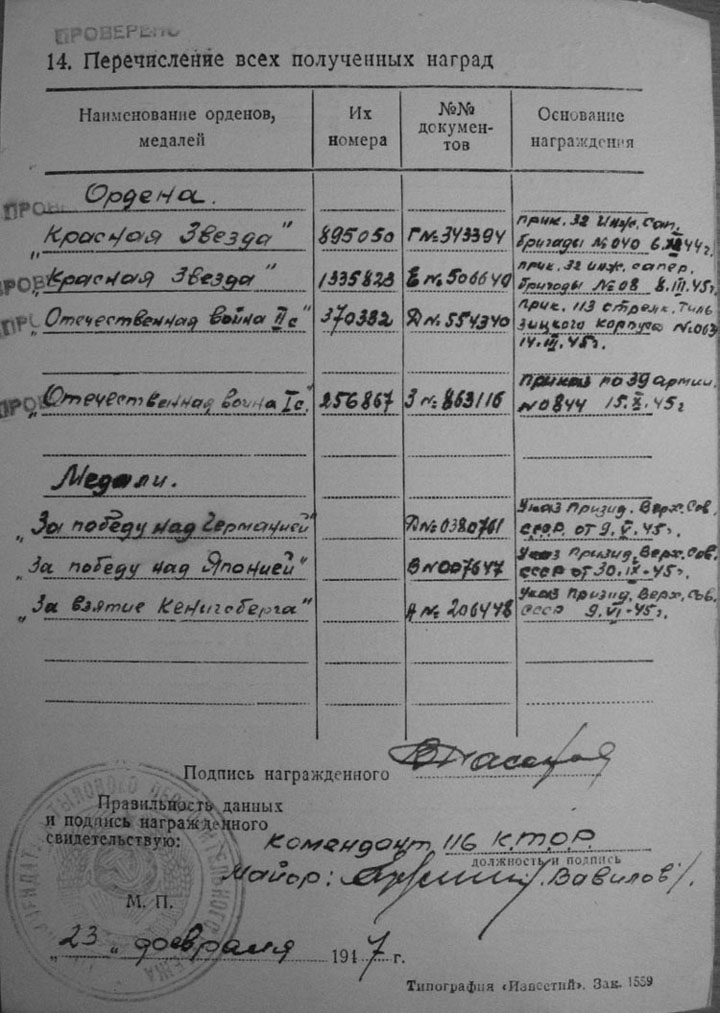 ПРОВЕРЕНО
14. Перечисление всех полученных наград
Наименование орденов, медалей
Их номера
№№ докумен-тов
Основание награждения
Ордена.
ПРОВ
„Красная Звезда" 895050 Г№343394 прик. 32 инж. сап. бригады №040 6.XII 44г.
ПРОВЕ
„Красная Звезда" 1335823 Е№506640 прик. 32 инж. сапер. бригады №08 8.III.45г.
ПРО
„Отечественная война IIс" 370382 Д№554340 прик. 113 стрелк. Тиль
зицкого корпуса №063
14.III.45г.
ПРОВ
„Отечественная война Iс." 256867 З№863116 приказ по 39 армии.
№0844 15.X.45г
Медали.
„За победу над Германией" Д№0380761 Указ Призид. Верх. Сов.
СССР. от 9.V.45г.
„За победу над Японией" В№007647 Указ Призид. Верх. Сов.
СССР от 30.IX-45г.
„За взятие Кенигсберга" А№206448 Указ Призид. Верх. Сов.
СССР 9.VI-45г.
Подпись награжденного
Правильность данных
и подпись награжденного
свидетельствую:
Комендант 116 К.ТОР.
должность и подпись
Майор: /Вавилов/.
М. П.
„23" февраля 1947 г.
Типография «Известий». Зак. 1559